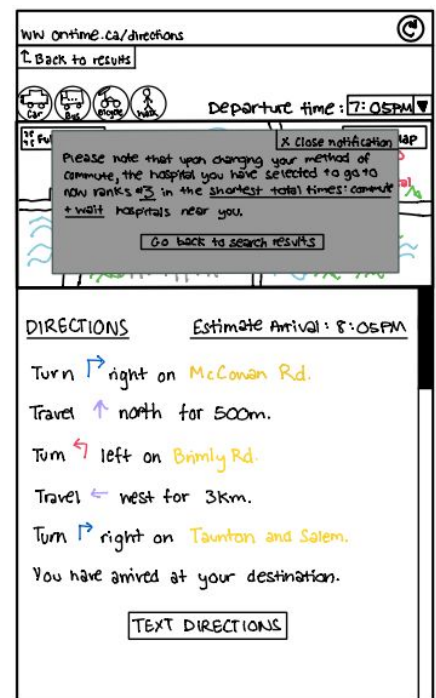 ww ontime.ca/directions
Back to results
Car Bus Bicycle Walk
Departure time: 7:05PM
Ful
x Close notification
Map
Please note that upon changing your method of
commute, the hospital you have selected to go to
now ranks #3 in the shortest total times: commute
+ wait hospitals near you.
Go back to search results
DIRECTIONS
Estimate Arrival: 8:05PM
Turn right on McCowan Rd.
Travel north for 500m.
Turn left on Brimly Rd.
Travel west for 3km.
Turn right on Taunton and Salem.
You have arrived at your destination.
TEXT DIRECTIONS